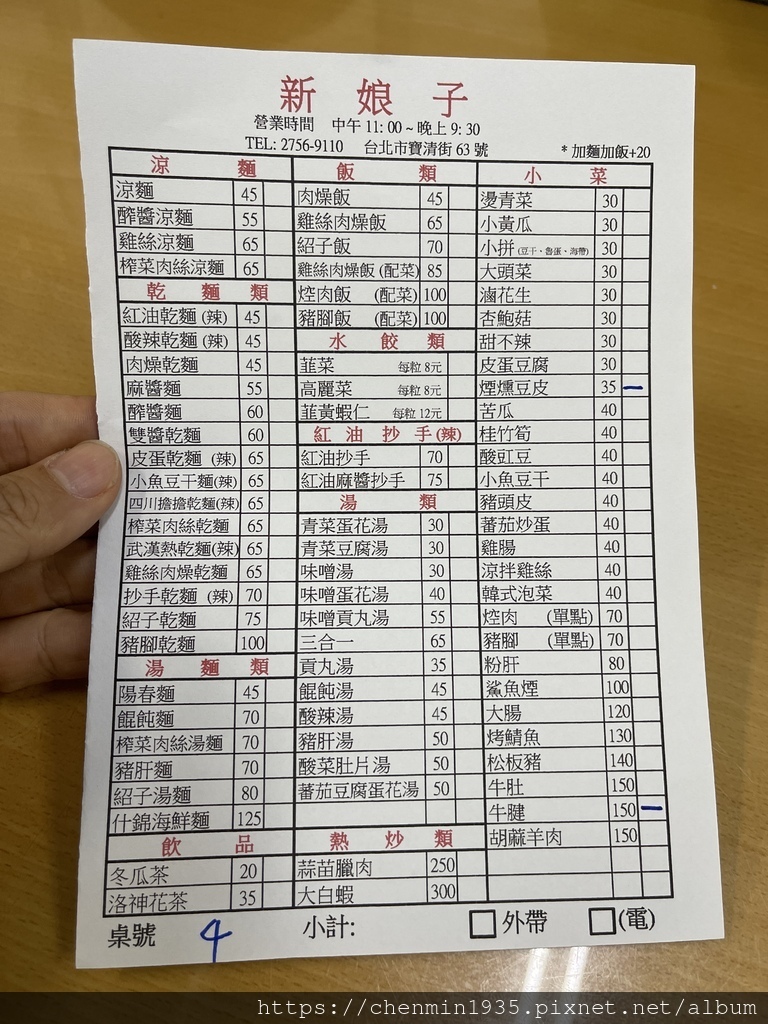 新娘子
營業時間 中午 11:00~晚上 9:30
TEL: 2756-9110 台北市寶清街 63 號 *加麵加飯+20
涼麵
涼麵 45
醡醬涼麵 55
雞絲涼麵 65
榨菜肉絲涼麵 65
乾麵類
紅油乾麵 (辣) 45
酸辣乾麵 (辣) 45
肉燥乾麵 45
麻醬麵 55
醡醬麵 60
雙醬乾麵 60
皮蛋乾麵 (辣) 65
小魚豆干麵(辣) 65
四川擔擔乾麵(辣) 65
榨菜肉絲乾麵 65
武漢熱乾麵(辣) 65
雞絲肉燥乾麵 65
抄手乾麵 (辣) 70
紹子乾麵 75
豬腳乾麵 100
湯麵類
陽春麵 45
餛飩麵 70
榨菜肉絲湯麵 70
豬肝麵 70
紹子湯麵 80
什錦海鮮麵 125
飲品
冬瓜茶 20
洛神花茶 35
飯類
肉燥飯 45
雞絲肉燥飯 65
紹子飯 70
雞絲肉燥飯 (配菜) 85
焢肉飯 (配菜) 100
豬腳飯 (配菜) 100
水餃類
韮菜 每粒 8元
高麗菜 每粒 8元
韮黃蝦仁 每粒 12元
紅油抄手(辣)
紅油抄手 70
紅油麻醬抄手 75
湯類
青菜蛋花湯 30
青菜豆腐湯 30
味噌湯 30
味噌蛋花湯 40
味噌貢丸湯 55
三合一 65
貢丸湯 35
餛飩湯 45
酸辣湯 45
豬肝湯 50
酸菜肚片湯 50
蕃茄豆腐蛋花湯 50
熱炒類
蒜苗臘肉 250
大白蝦 300
小菜
燙青菜 30
小黃瓜 30
小拼 (豆干、魯蛋、海帶) 30
大頭菜 30
滷花生 30
杏鮑菇 30
甜不辣 30
皮蛋豆腐 30
煙燻豆皮 35 一
苦瓜 40
桂竹筍 40
酸豇豆 40
小魚豆干 40
豬頭皮 40
蕃茄炒蛋 40
雞腸 40
涼拌雞絲 40
韓式泡菜 40
焢肉 (單點) 70
豬腳 (單點) 70
粉肝 80
鯊魚煙 100
大腸 120
烤鯖魚 130
松板豬 140
牛肚 150
牛腱 150 一
胡麻羊肉 150
桌號 4 小計: □ 外帶 □ (電)
https://chenmin1935.pixnet.net/album